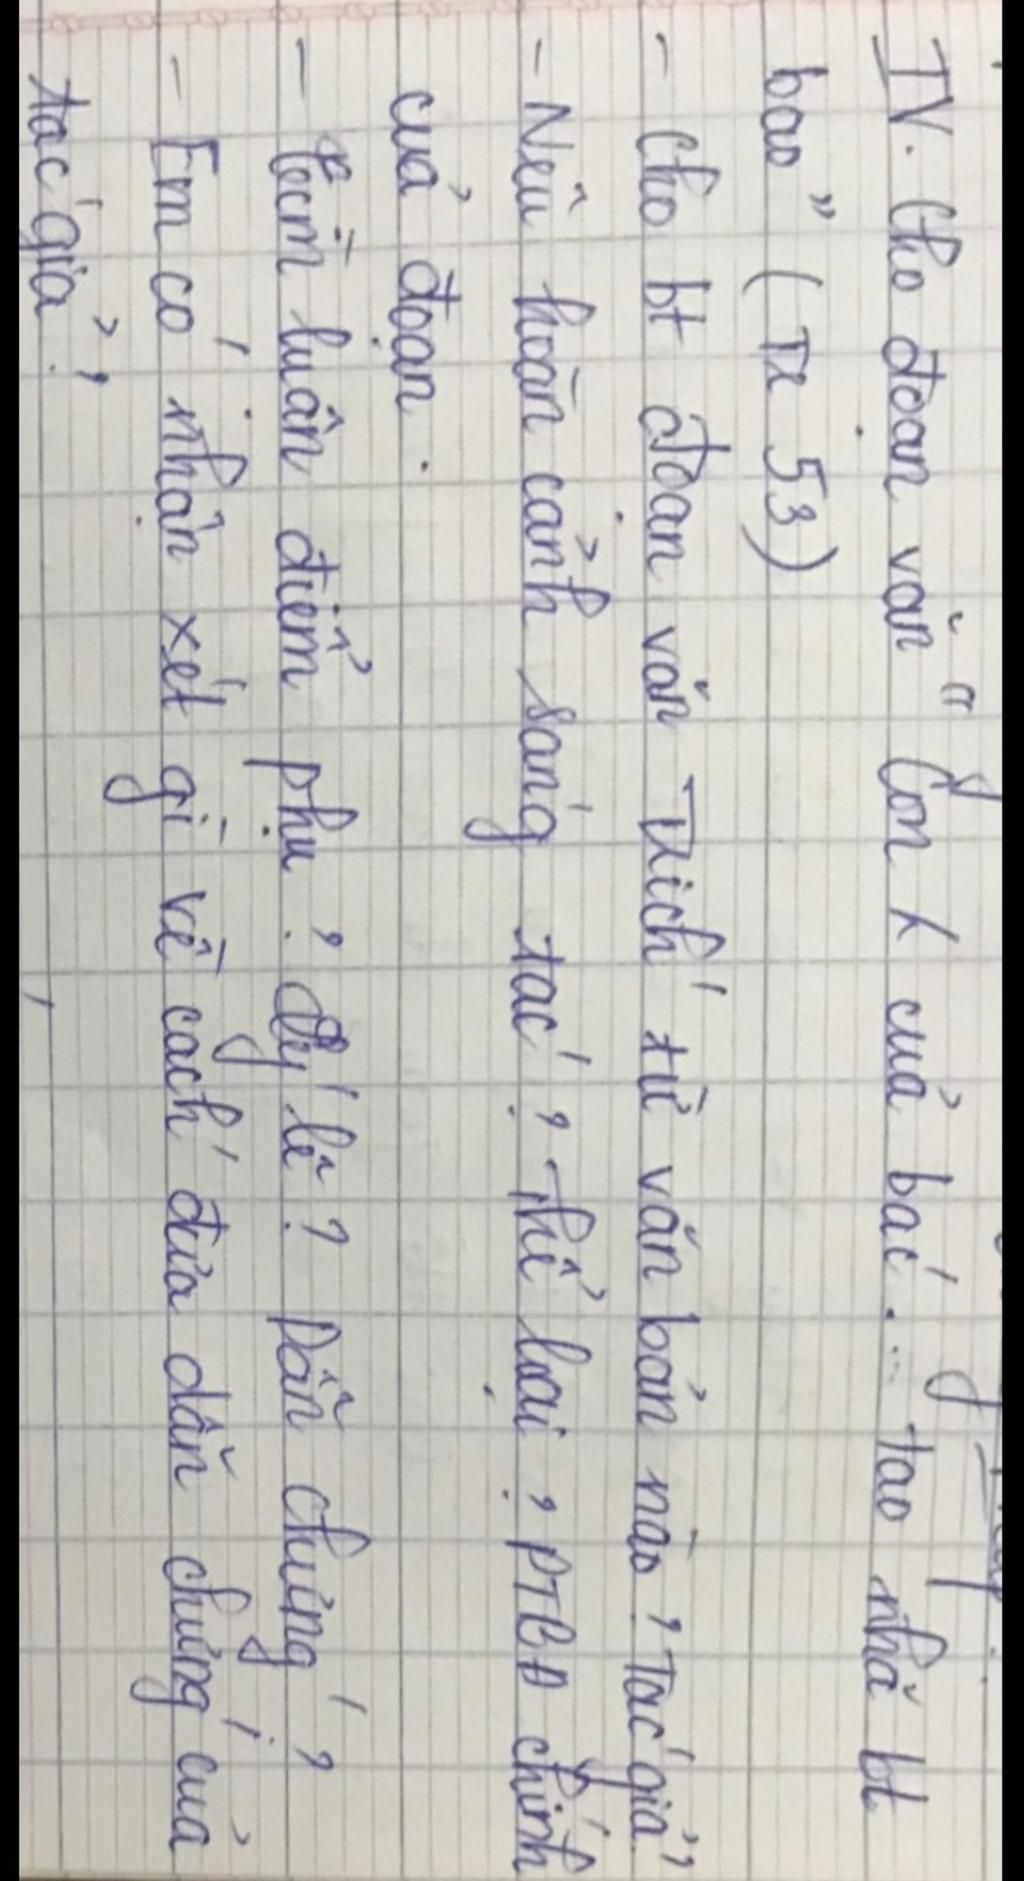 IV. Cho đoạn văn " Con λ của bác ... tao nhã bt
bao" (Tr 53)
- Cho bt đoạn văn Trích từ văn bản nào? Tác giả?
- Nêu hoàn cảnh sáng tác? Thể loại? PTBĐ chính
của đoạn.
- Tìm luận điểm phụ? Lý lẽ? Dẫn chứng?
- Em có nhận xét gì về cách đưa dẫn chứng của
tác giả?